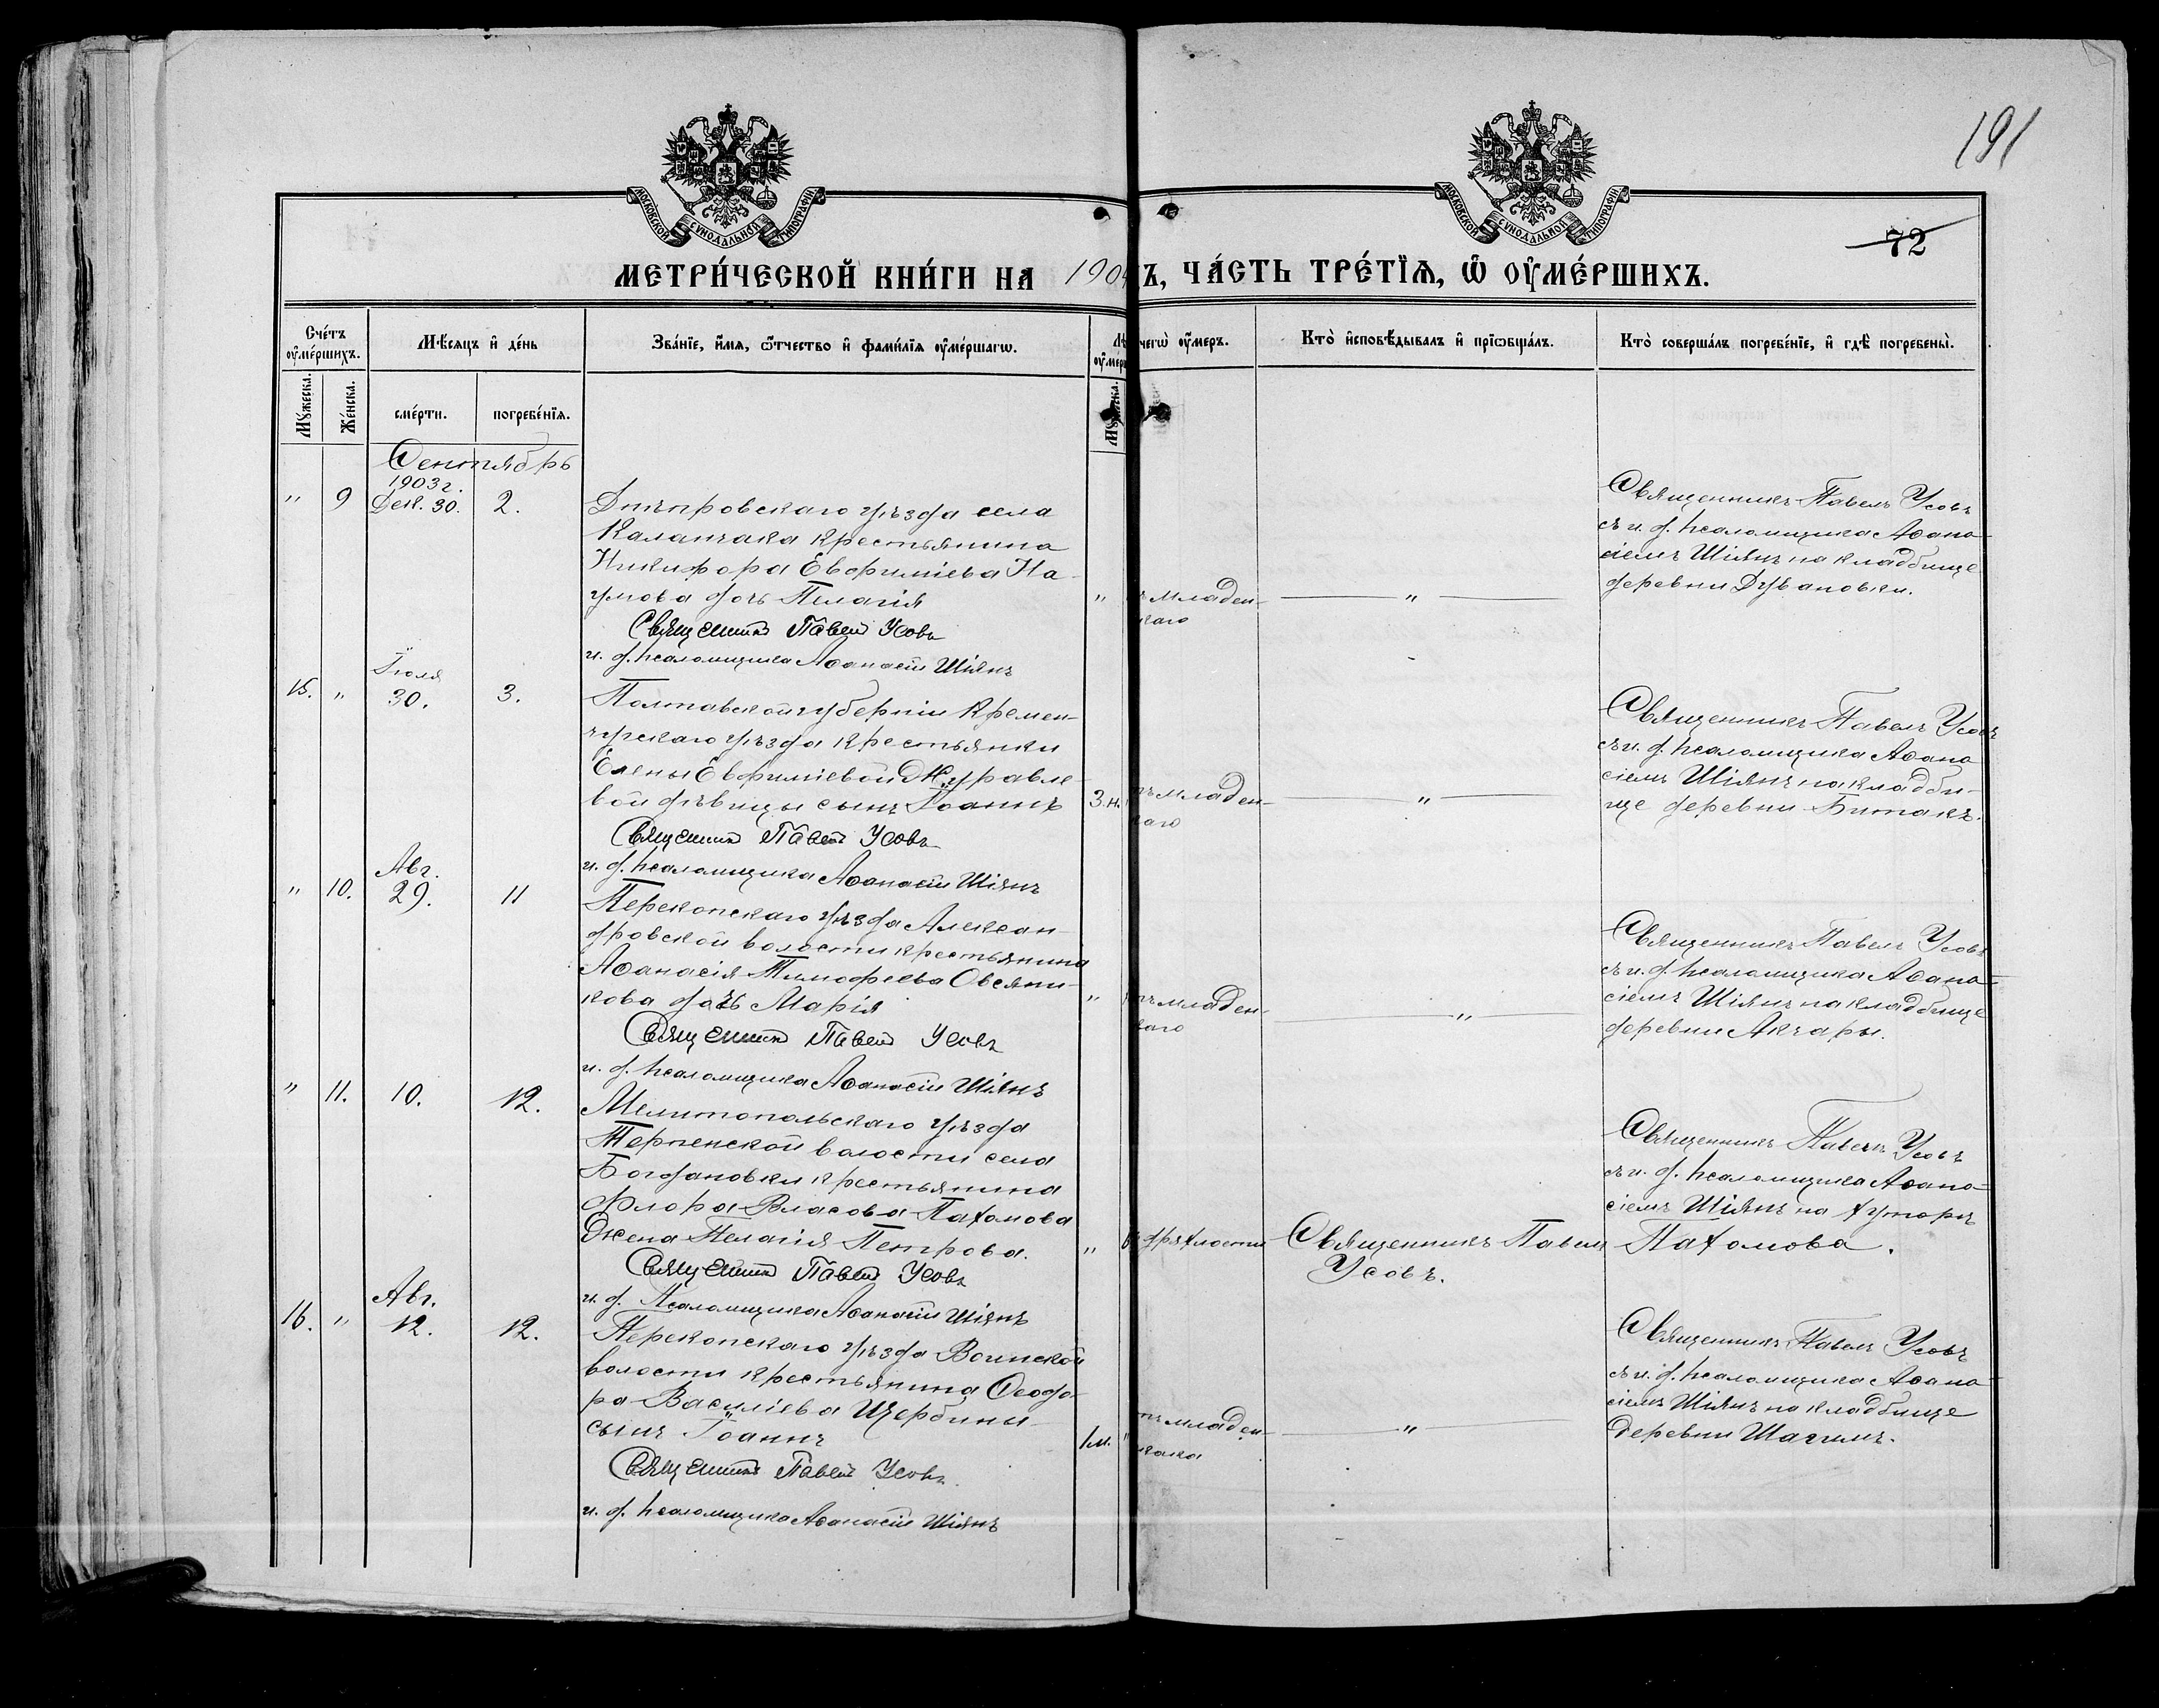 191
72
МОСКОВСКОЙ СѴНОДАЛЬНОЙ ТИПОГРАФІИ
МОСКОВСКОЙ СѴНОДАЛЬНОЙ ТИПОГРАФІИ
МЕТРИ́ЧЕСКОЙ КНИ́ГИ НА 1904
Ъ, ЧА́СТЬ ТРЕ́ТІЯ, Ѡ ОУМЕ́РШИХЪ.
Сче́тъ оумéршихъ.
Мѣ́сяцъ и де́нь
Зва́нїе, и́мя, ѻ҆́тчество и фами́лїя оумéршагѡ.
чегѡ̀ оу́меръ.
Кто̀ исповѣ́дывалъ и прїѡбща́лъ.
Кто̀ соверша́лъ погребе́нїе, и гдѣ̀ погребены̀.
Мꙋ́жеска.
Же́нска.
сме́рти.
погребе́нїя.
Сентябрь
1903 г.
" 9 Дек. 30. 2.
Днепровскаго уѣзда села
Каланчака крестьянина
Никифора Евфиміева На-
умова дочь Пелагія
Священникъ Павелъ Усовъ
и. д. псаломщика Аѳанасій Шіянъ
" младен-
каго
"
Священникъ Павелъ Усовъ
съ и. д. псаломщика Аѳана-
сіемъ Шіянъ на кладбище
деревни Дувановки.
Іюля
15. " 30. 3.
Полтавской губерніи Кремен-
чугскаго уѣзда крестьянки
Елены Евфиміевой Журавле-
вой дѣвицы сынъ Іоаннъ
Священникъ Павелъ Усовъ
и. д. псаломщика Аѳанасій Шіянъ
3.н. младен-
каго
"
Священникъ Павелъ Усовъ
съ и. д. псаломщика Аѳана
сіемъ Шіянъ на кладби-
ще деревни Битакъ.
Авг.
" 10. 29. 11
Перекопскаго уѣзда Алексан-
дровской волости крестьянина
Аѳанасія Тимофеева Овсяни-
кова дочь Марія
Священникъ Павелъ Усовъ
и. д. псаломщика Аѳанасій Шіянъ
" младен-
каго
"
Священникъ Павелъ Усовъ
съ и. д. псаломщика Аѳана-
сіемъ Шіянъ на кладбище
деревни Акчары.
" 11. 10. 12.
Мелитопольскаго уѣзда
Терпенской волости села
Богдановки крестьянина
Флора Власова Пахомова
жена Пелагія Петрова.
Священникъ Павелъ Усовъ
и. д. Псаломщика Аѳанасій Шіянъ
" дряхлости
Священникъ Павелъ
Усовъ.
Священникъ Павелъ Усовъ
съ и. д. псаломщика Аѳана-
сіемъ Шіянъ на хуторѣ
Пахомова.
Авг.
16. " 12. 12.
Перекопскаго уѣзда Воинской
волости крестьянина Ѳеодо-
ра Василіева Щербины
сынъ Іоаннъ
Священникъ Павелъ Усовъ
и. д. псаломщика Аѳанасій Шіянъ
1м. " младен-
"
Священникъ Павелъ Усовъ
съ и. д. псаломщика Аѳана-
сіемъ Шіянъ на кладбище
деревни